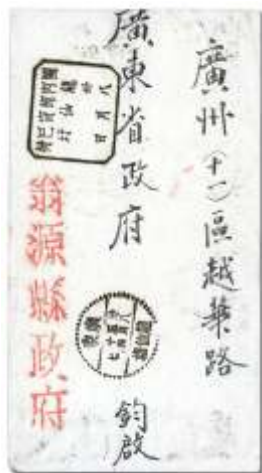 廣州(十一)區越華路
廣東省政府 鈞啟
翁源縣政府